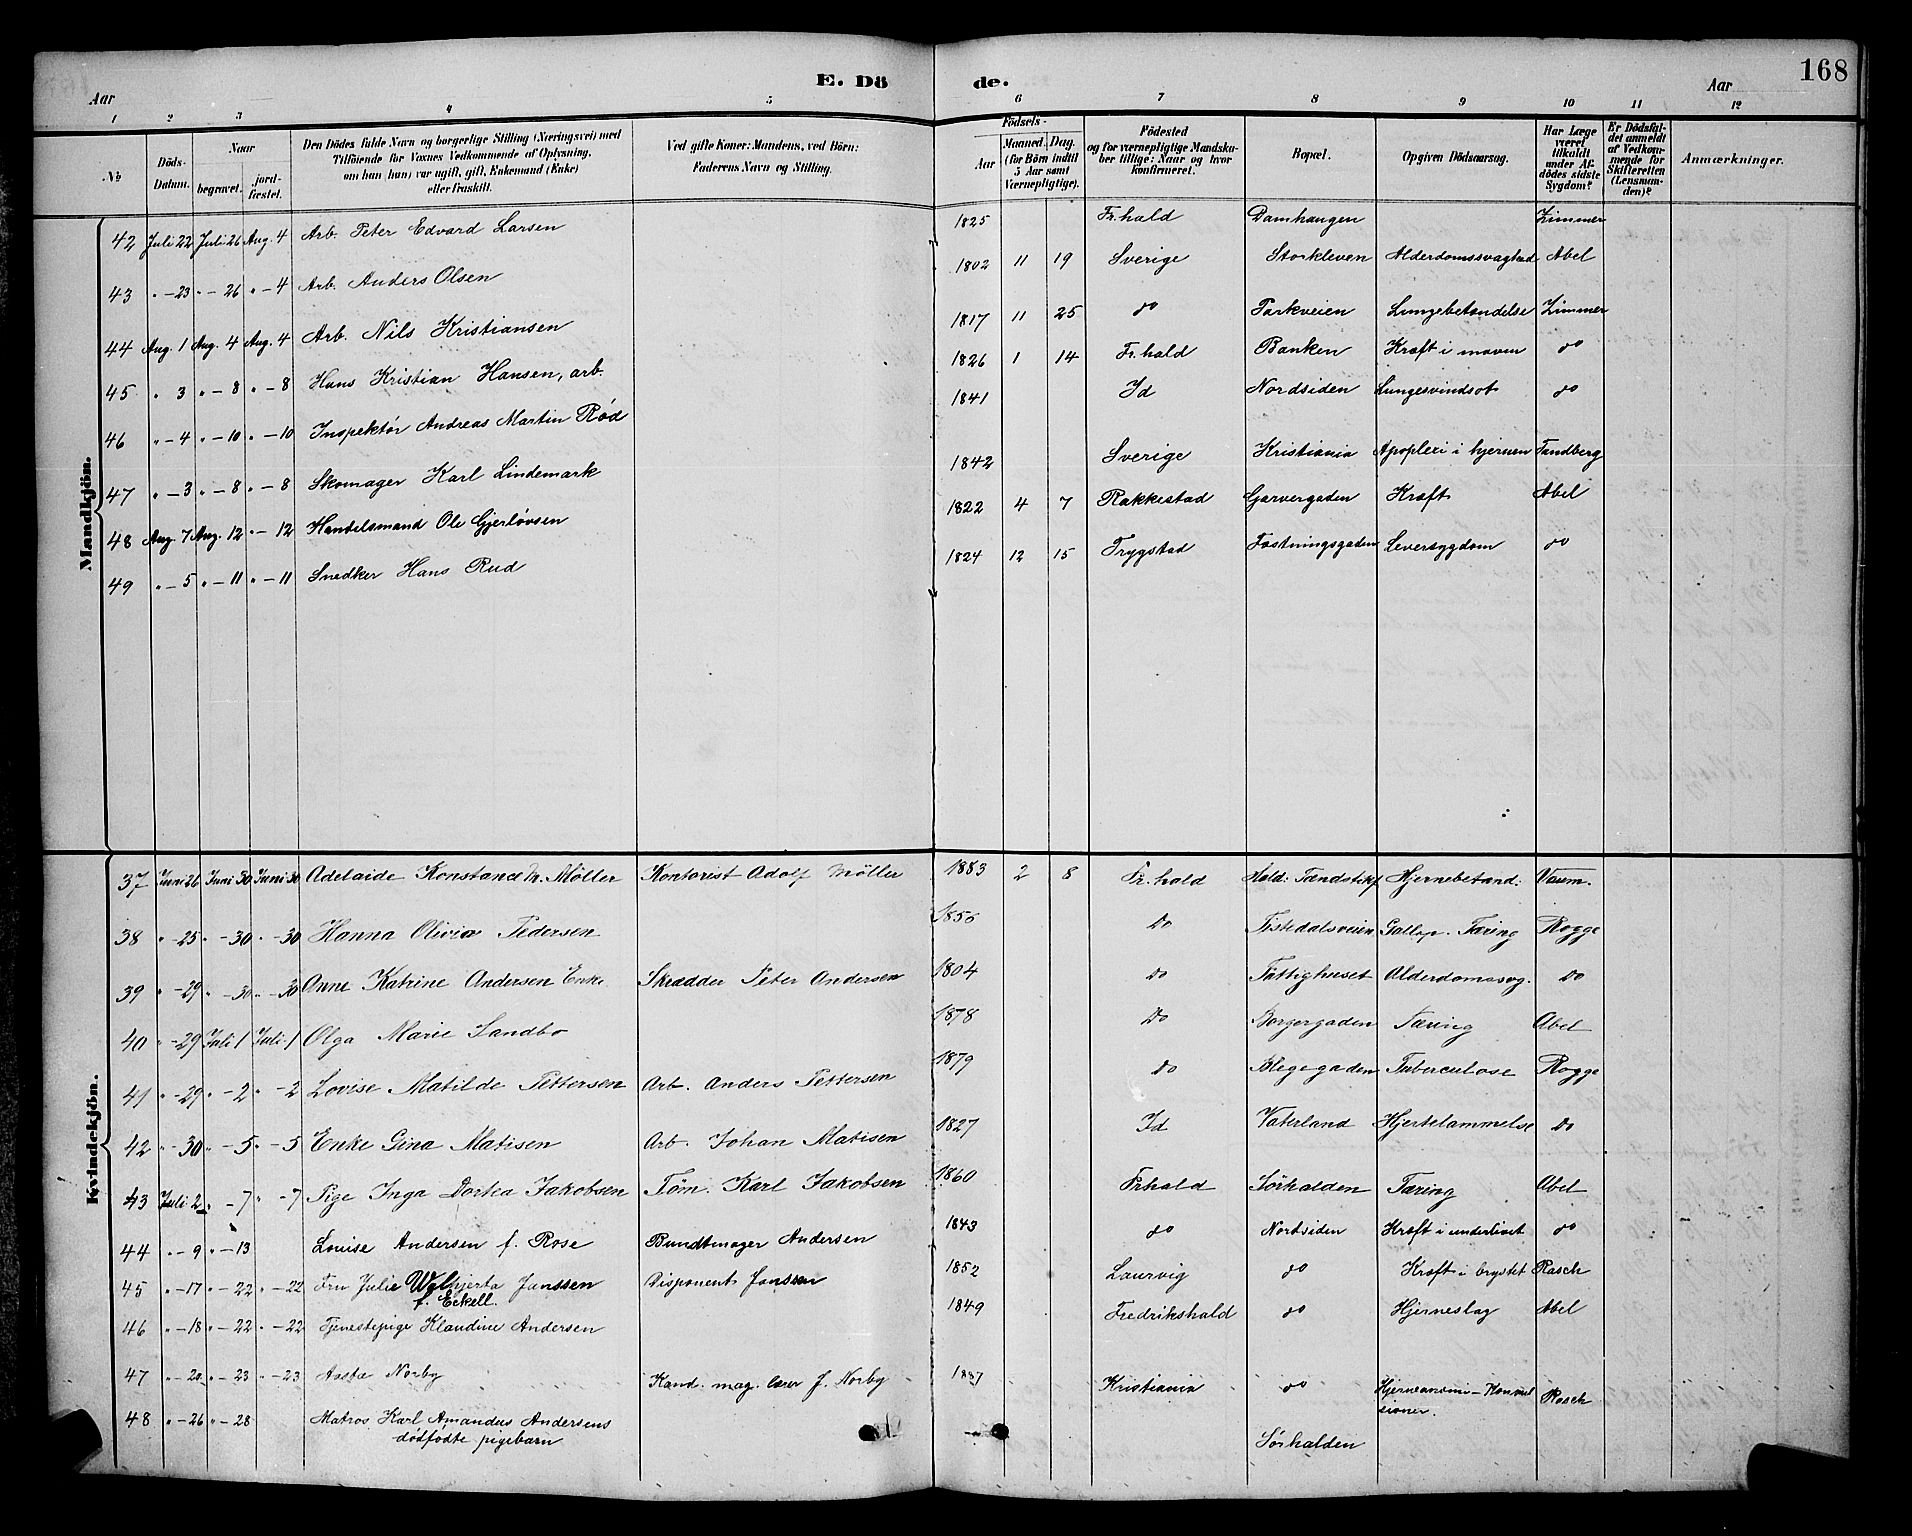 168
E. Dö de.
Aar Aar
1 2 3 4 5 6 7 8 9 10 11 12
№ Döds-Datum. Naar begravet. jordfæstet. Den Dödes fulde Navn og borgerlige Stilling (Næringsvei) med Tilföiende for Voxnes Vedkommende af Oplysning, om han (hun) var ugift, gift, Enkemand (Enke) eller fraskilt. Ved gifte Koner: Mandens, ved Börn: Faderens Navn og Stilling. Födsels- Aar Maaned. Dag. (for Börn indtil 5 Aar samt Værnepligtige). Födested og for værnepligtige Mandskaber tillige: Naar og hvor konfirmeret. Bopæl. Opgiven Dödsaarsag. Har Læge været tilkaldt under Afdödes sidste Sygdom? Er Dödsfaldet anmeldt af Vedkommende for Skifteretten (Lensmanden)? Anmærkninger.
Mandkjön.
42 Juli 22 Juli 26 Aug. 4 Arb. Peter Edvard Larsen 1825 Fr.hald Damhaugen Zimmer
43 " - 23 " - 26 " - 4 Arb. Anders Olsen 1802 11 19 Sverige Storkleven Alderdomssvaghed Abel
44 Aug. 1 Aug. 4 Aug. 4 Arb. Nils Kristiansen 1817 11 25 do Parkveien Lungebetændelse Zimmer
45 " 3 " - 8 " - 8 Hans Kristian Hansen, arb. 1826 1 14 Fr.hald Banken Kræft i maven do
46 " - 4 " - 10 " - 10 Inspektør Andreas Martin Rød 1841 Id Nordsiden Lungesvindsot do
47 " - 3 " - 8 " - 8 Skomager Karl Lindemark 1842 Sverige Kristiania Apoplexi i hjernen Tandberg
48 Aug. 7 Aug. 12 " - 12 Handelsmand Ole Gjerløvsen 1822 4 7 Rakkestad Garvergaden Kræft Abel
49 " - 5 " - 11 " - 11 Snedker Hans Rud 1824 12 15 Trygstad Fæstningsgaden Leversygdom do
Kvindekjön.
37 Juni 26 Juni 30 Juni 30 Adelaide Konstance M. Møller Kontorist Adolf Møller 1883 2 8 Fr.hald Hald: Tændstikf Hjernebetænd: Vaum.
38 " - 25 " - 30 " - 30 Hanna Olivia Pedersen 1856 Do Tistedalsveien Gallop. Tæring Rogge
39 " - 29 " - 30 " - 30 Anne Katrine Andersen Enke Skrædder Peter Andersen 1804 Do Fattighuset Alderdomssvag. Do
40 " - 29 Juli 1 Juli 1 Olga Marie Sandbo 1878 Do Borgergaden Tæring Abel
41 " - 29 " - 2 " - 2 Lovise Matilde Pettersen Arb. Anders Pettersen 1879 Do Blegegaden Tuberculose Rogge
42 " - 30 " - 5 " - 5 Enke Gina Matisen Arb. Johan Matisen 1827 Id Vaterland Hjertelammelse Do
43 Juli 2 " - 7 " - 7 Pige Inga Dortea Jakobsen Tøm. Karl Jakobsen 1860 Frhald Sørhalden Tæring Abel
44 " - 9 " - 13 Lovise Andersen f. Rose Bundtmager Andersen 1843 do Nordsiden Kræft i underlivet do
45 " - 17 " - 22 " - 22 Fru Julie Walhjerta Janssen Disponent Janssen 1852 Laurvig do Kræft i brystet Rasch
f. Eckell.
46 " - 18 " - 22 " - 22 Tjenestepige Klandine Andersen 1849 Fredrikshald do Hjerneslag Abel
47 " - 20 " - 23 " - 23 Aasta Norby Kand. mag. lærer J. Norby 1887 Kristiania do Hjerneanæmi - Konvul
sioner. Rasch
48 " - 26 " - 28 Matros Karl Amandus Andersens
dødfødte pigebarn Sørhalden